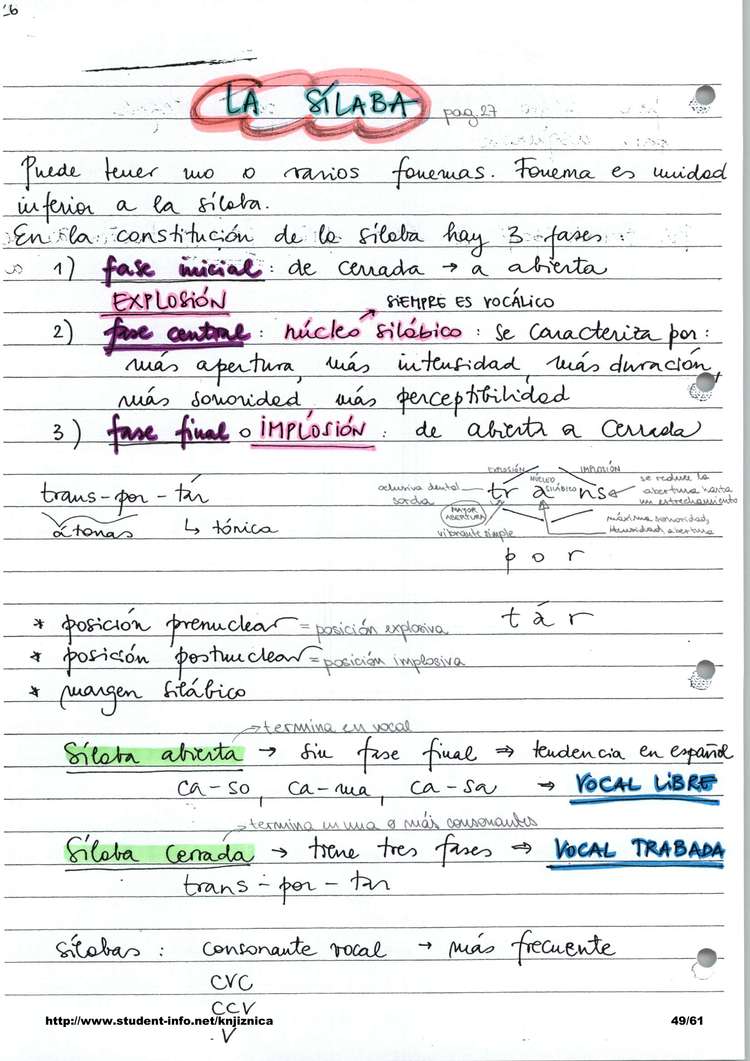 LA SÍLABA pag. 27
Puede tener uno o varios fonemas. Fonema es unidad
inferior a la sílaba.
En la constitución de la sílaba hay 3 fases :
1) fase inicial : de cerrada → a abierta
EXPLOSIÓN SIEMPRE ES VOCÁLICO
2) fase central : núcleo silábico : se caracteriza por :
más apertura, más intensidad, más duración,
más sonoridad, más perceptibilidad
3) fase final o IMPLOSIÓN : de abierta a cerrada
EXPLOSIÓN IMPLOSIÓN
NÚCLEO SILÁBICO
trans - por - tár
oclusiva dental sorda
tr a ns
se reduce la abertura hasta un estrechamiento
átonas ↳ tónica
MAYOR ABERTURA
vibrante simple
máxima sonoridad, intensidad, abertura
p o r
t á r
* posición prenuclear = posición explosiva
* posición postnuclear = posición implosiva
* margen silábico
→ termina en vocal
Sílaba abierta → sin fase final ⇒ tendencia en español
ca - so, ca - ma, ca - sa → VOCAL LIBRE
→ termina en una o más consonantes
Sílaba cerrada → tiene tres fases ⇒ VOCAL TRABADA
trans - por - tar
sílabas : consonante vocal → más frecuente
CVC
CCV
http://www.student-info.net/knjiznica 49/61
V